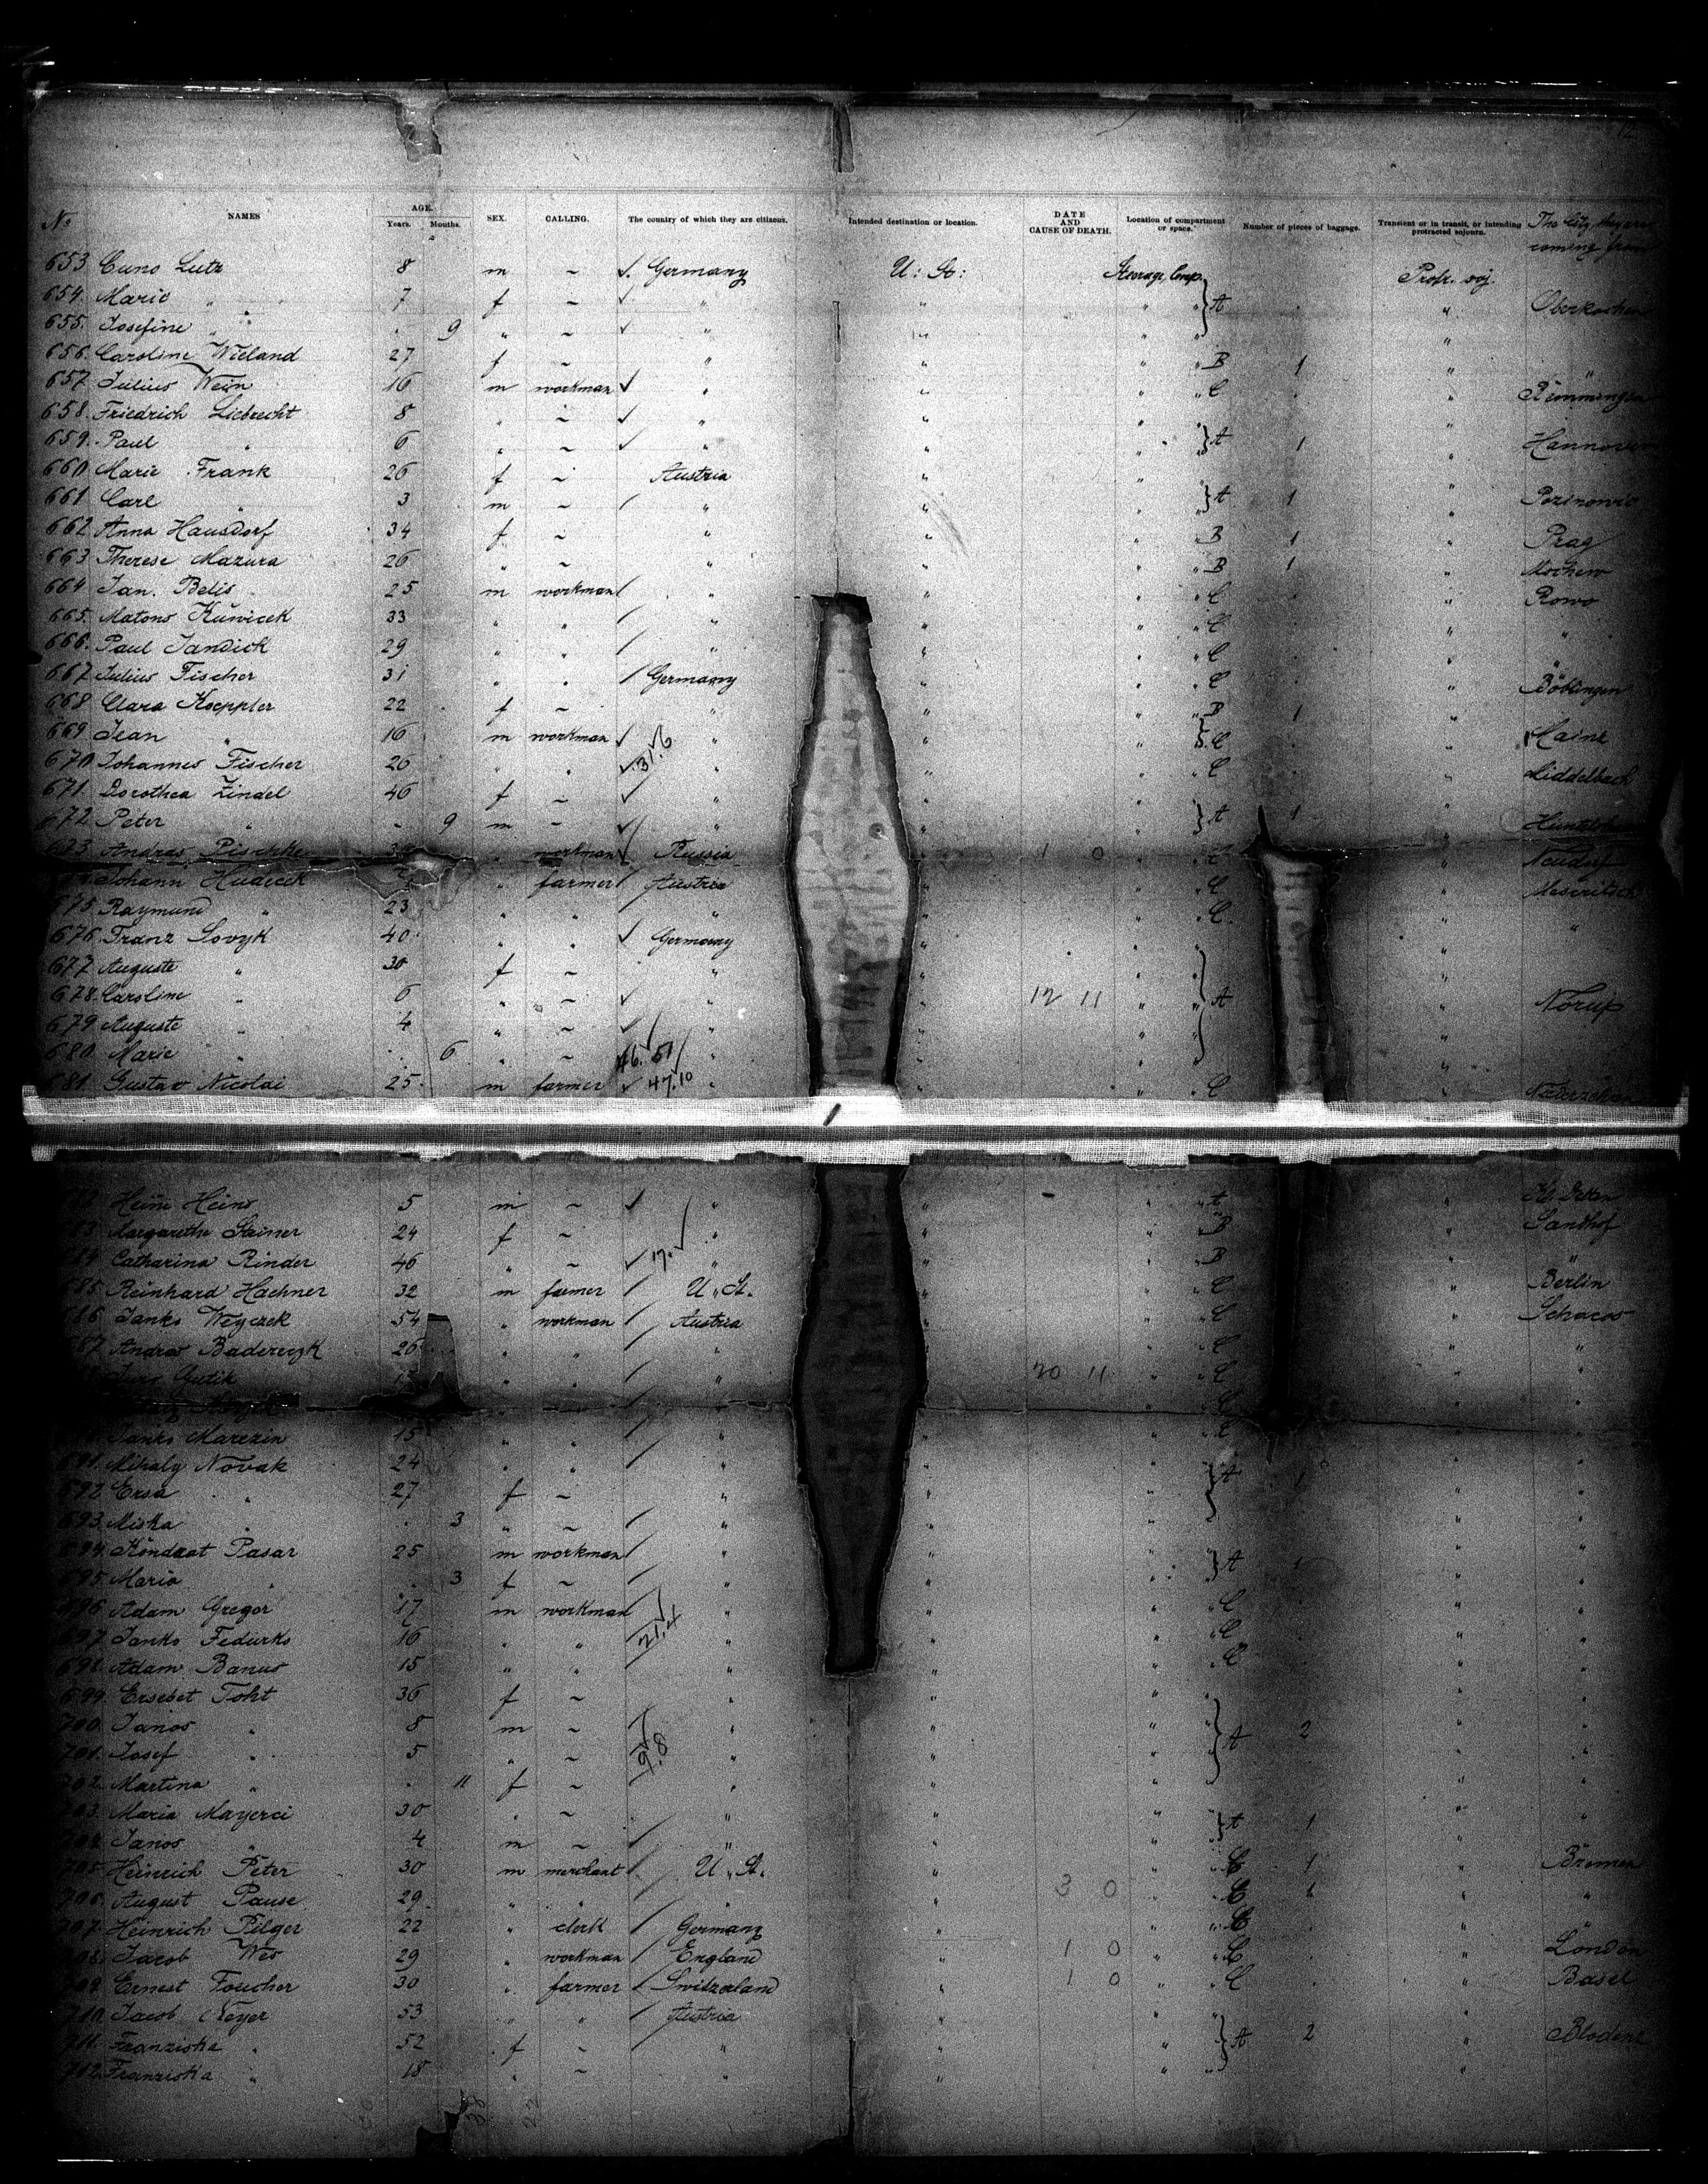 12
No NAMES AGE. Years. Months. SEX. CALLING. The country of which they are citizens. Intended destination or location. DATE AND CAUSE OF DEATH. Location of compartment or space. Number of pieces of baggage. Transient or in transit, or intending protracted sojourn. The City they are coming from
653 Cuno Lutz 8 m ~ ✓. Germany U: St: Steerage Comp. Protr. soj.
654. Marie " 7 f ~ ✓ " " " " } A " Oberkochen
655. Josefine " " 9 " ~ ✓ " " " " "
656. Caroline Wieland 27 f ~ " " " " B 1 " "
657. Julius Wein 16 m workman ✓ " " " " C "
658. Friedrich Liebrecht 8 " ~ ✓ " " " " "
659. Paul " 6 " ~ ✓ " " " " } A 1 " Hannover
660 Marie Frank 26 f ~ Austria " " " "
661 Carl " 3 m ~ / " " " " } A 1 "
662 Anna Hausdorf 34 f ~ " " " " B 1 " Prag
663 Therese Mazura 26 " ~ " " " " B 1 "
664 Jan. Belis 25 m workman / " " " " C " Rowo
665. Matons 33 " " / " " " " C " "
666. Paul Jandick 29 " " / " " " " C " "
667 Julius Fischer 31 " " / Germany " " " C " Böblingen
668 Clara Koeppler 22 f ~ " " " " B 1 "
669. Jean " 16 m workman ✓ " " " " } C " Mainz
670 Johannes Fischer 26 " " ✓ 31.6 " " " " C "
671. Dorothea Zindel 46 f ~ ✓ " " " " "
672 Peter " ~ 9 m ~ ✓ " " " " } A 1 "
673 Andreas Pischke " workman ✓ Russia " 1 0 " " C " Neudorf
Johann Hudecek " farmer / Austria " " " C " Meseritsch
675 Raymund " 23 " " / " " " " C. " "
676. Franz Sovyk 40 " " ✓ Germany " " " "
677 Auguste " 30 f ~ " " " " "
678. Caroline " 6 " ~ ✓ " " 12 11 " " } A " Norup
679 Auguste " 4 " ~ ✓ " " " " "
680. Marie " 6 " ~ 46. 51 " " " " "
681. Gustav Nicolai 25 m farmer ✓ 47.10 " " " " C "
Hein Heins 5 m ~ ✓ " " " " A "
683 Margarethe Stainer 24 f ~ " " " " B " Sandhof
684 Catharina Rinder 46 " ~ ✓ 17. " " " " B " "
685. Reinhard Hachner 32 m farmer / U. St. " " " C " Berlin
686 Janko Weyczek 54 " workman / Austria " " " C " Schacos
687 Andras 26 " " / " " " " C " "
Juro Gutik " " / " " 20 11 " " C " "
Janko Marezin 15 " " / " " " " C " "
691. Mihaly Novak 24 " " / " " " " } A 1 " "
692 Ersa " 27 f ~ " " " " " "
693. Miska " 3 " ~ / " " " " " "
694. Kondrat Pasar 25 m workman / " " " " } A 1 " "
695. Maria " 3 f ~ / " " " " " "
696. Adam Gregor 17 m workman / " " " " C " "
697. Janko Fedurko 16 " " 21.4 " " " " C " "
698. Adam Banus 15 " " " " " " C " "
699. Ersebet Toht 36 f ~ " " " " " "
700. Janos " 8 m ~ / " " " " } A 2 " "
701. Josef " 5 " ~ 9.8 " " " " " "
702. Martina " 11 f ~ " " " " " "
703. Maria Mayerci 30 " ~ " " " " } A 1 " "
704. Janos " 4 m ~ / " " " " " "
705. Heinrich Peter 30 m merchant / U. St. " " " C 1 " Bremen
706. August Pause 29 " " / " " 3 0 " " C 1 " "
707. Heinrich Pilger 22 " clerk / Germany " " " C " "
708. Jacob Wes 29 " workman / England " 1 0 " " C " London
709. Ernest Foucher 30 " farmer / Switzerland " 1 0 " " C " Basel
710. Jacob Neyer 53 " " / Austria " " " "
711. Franziska " 52 f ~ / " " " " } A 2 " Bludenz
712. Franziska " 18 " ~ " " " " "
38 22